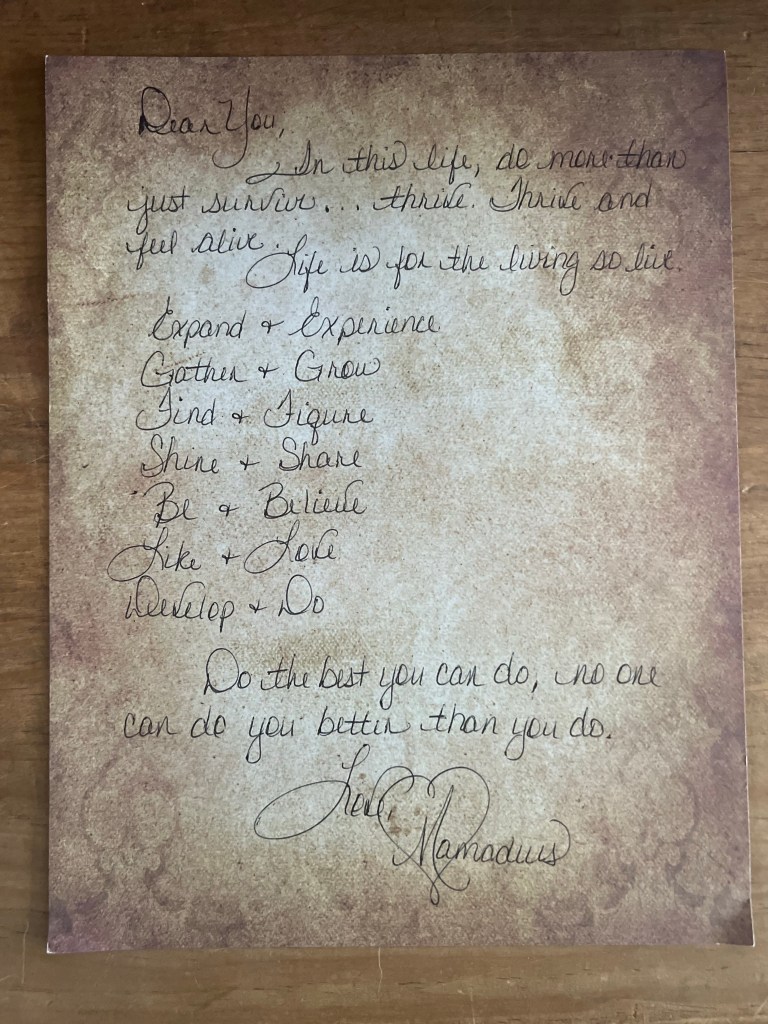 Dear You,
In this life, do more than
just survive... thrive. Thrive and
feel alive.
Life is for the living so live.
Expand + Experience
Gather + Grow
Find + Figure
Shine + Share
Be + Believe
Like + Love
Develop + Do
Do the best you can do, no one
can do you better than you do.
Love,